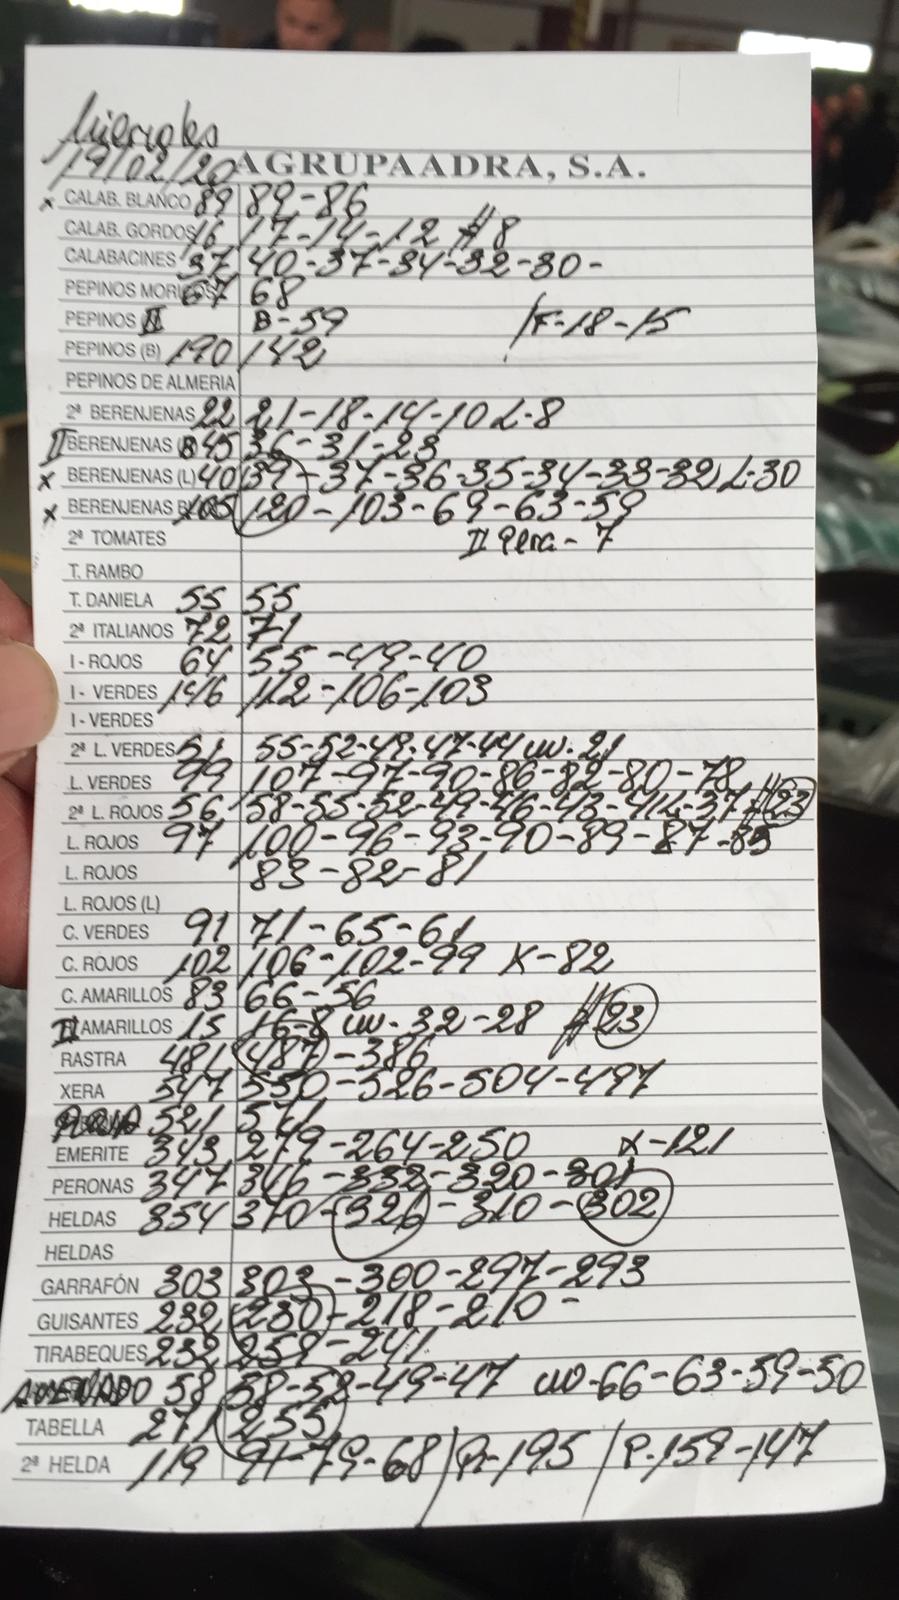 Miercoles
19/02/20 AGRUPAADRA, S.A.
x CALAB. BLANCO 89 89-86
CALAB. GORDOS 16 17-14-12 # 8
CALABACINES 37 40-37-34-32-30-
PEPINOS 67 68
PEPINOS II B-59 /F-18-15
PEPINOS (B) 190 142
PEPINOS DE ALMERIA
2ª BERENJENAS 22 21-18-14-10 L-8
II BERENJENAS B 45 36-31-23
x BERENJENAS (L) 40 39-37-36-35-34-33-32 L-30
x BERENJENAS 105 120-103-69-63-59
2ª TOMATES II Pera-7
T. RAMBO
T. DANIELA 55 55
2ª ITALIANOS 72 71
I - ROJOS 64 55-49-40
I - VERDES 146 112-106-103
I - VERDES
2ª L. VERDES 51 55-52-49-47-44 w-21
L. VERDES 99 107-97-90-86-82-80-78
2ª L. ROJOS 56 58-55-52-49-46-43-41-37 # 23
L. ROJOS 97 100-96-93-90-89-87-85
L. ROJOS 83-82-81
L. ROJOS (L)
C. VERDES 91 71-65-61
C. ROJOS 102 106-102-99 X-82
C. AMARILLOS 83 66-56
II AMARILLOS 15 16-8 w-32-28 # 23
RASTRA 481 487-386
XERA 547 550-526-504-497
521 511
EMERITE 343 279-264-250 X-121
PERONAS 347 346-332-320-301
HELDAS 354 370-326-310-302
HELDAS
GARRAFÓN 303 303-300-297-293
GUISANTES 232 230-218-210-
TIRABEQUES 232 259-241
58 58-52-49-47 w-66-63-59-50
TABELLA 271 255
2ª HELDA 119 91-79-68/Pr-195 /P.159-147